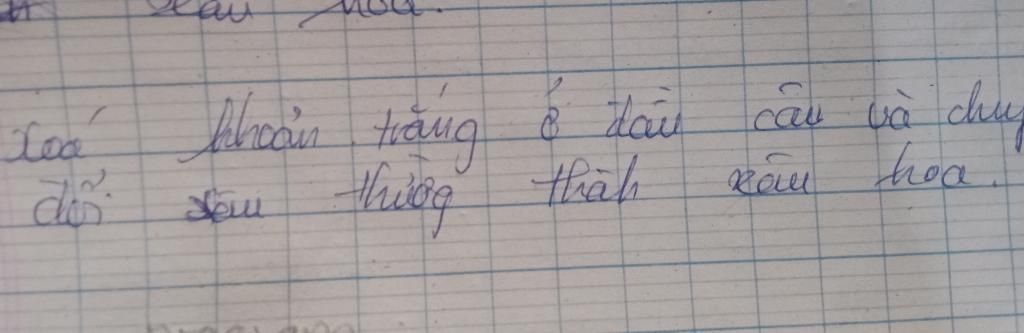 xâu hoa.
Xoá khoản trắng ở đầu câu và chuy
đổi xâu thường thành xâu hoa.